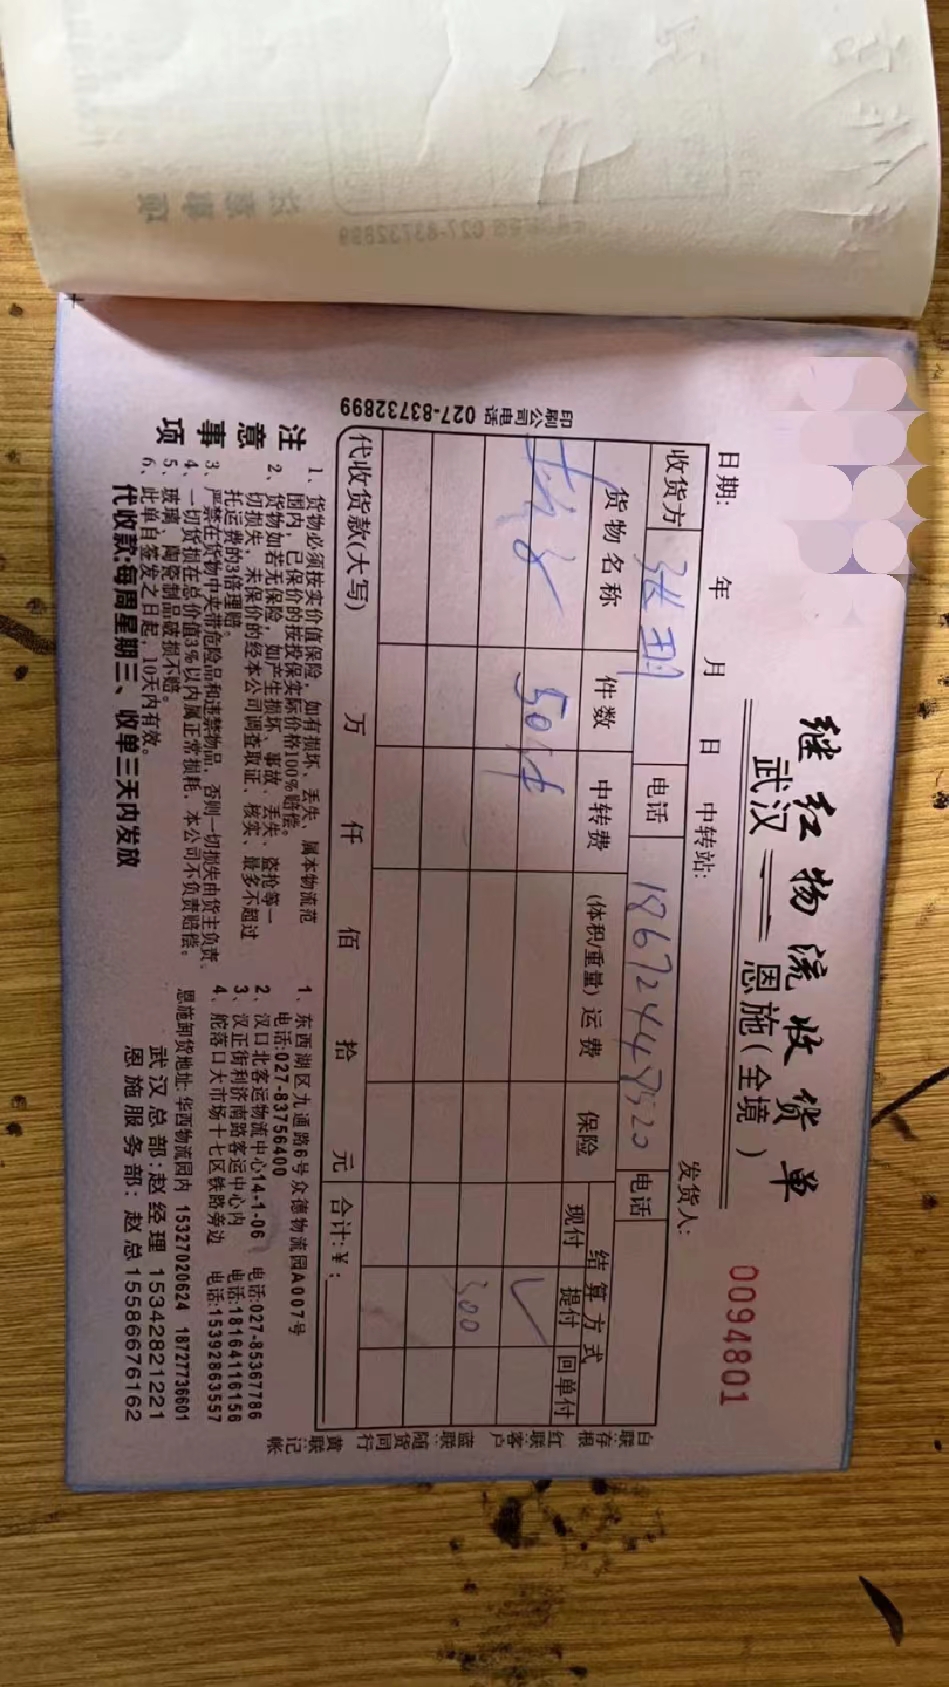 继红物流收货单
武汉 恩施(全境)
0094801
日期: 年 月 日 中转站: 发货人:
收货方 电话 电话
货物名称 件数 中转费 (体积/重量)运费 保险 结算方式
现付 提付 回单付
50件 ✓
300
代收货款(大写) 万 仟 佰 拾 元 合计:¥:
印刷公司电话 027-83732899
白联:存根 红联:客户 蓝联:随货同行 黄联:记帐
注意事项
1、货物必须按实价值保险,如有损坏、丢失、属本物流范
围内,已保价的按投保实际价格100%赔偿。
2、货物如若无保险,如产生损坏、事故、丢失、盗抢等一
切损失,未保价的经本公司调查取证、核实、最多不超过
托运费的3倍理赔。
3、严禁在货物中夹带危险品和违禁物品,否则一切损失由货主负责。
4、一切货损在总价值3%以内属正常损耗,本公司不负责赔偿。
5、玻璃、陶瓷制品破损不赔。
6、此单自签发之日起,10天内有效。
代收款:每周星期三、收单三天内发放
1、东西湖区九通路6号众德物流园A007号
电话:027-83756400
2、汉口北客运物流中心14-1-06 电话:027-85367786
3、汉正街利济南路客运中心内 电话:18164116156
4、舵落口大市场十七区铁路旁边 电话:15392863557
恩施卸货地址:华西物流园内 15327020624 18727736601
武汉总部:赵经理 15342821221
恩施服务部:赵总 15586676162